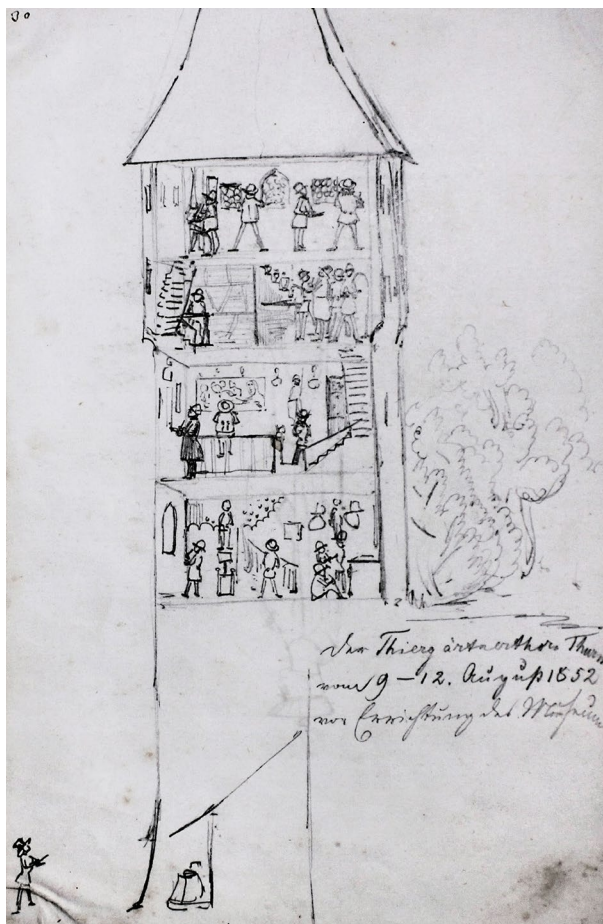 30
Der Thiergärtnerthor Thurm
vom 9 – 12. August 1852
vor Errichtung des Museum